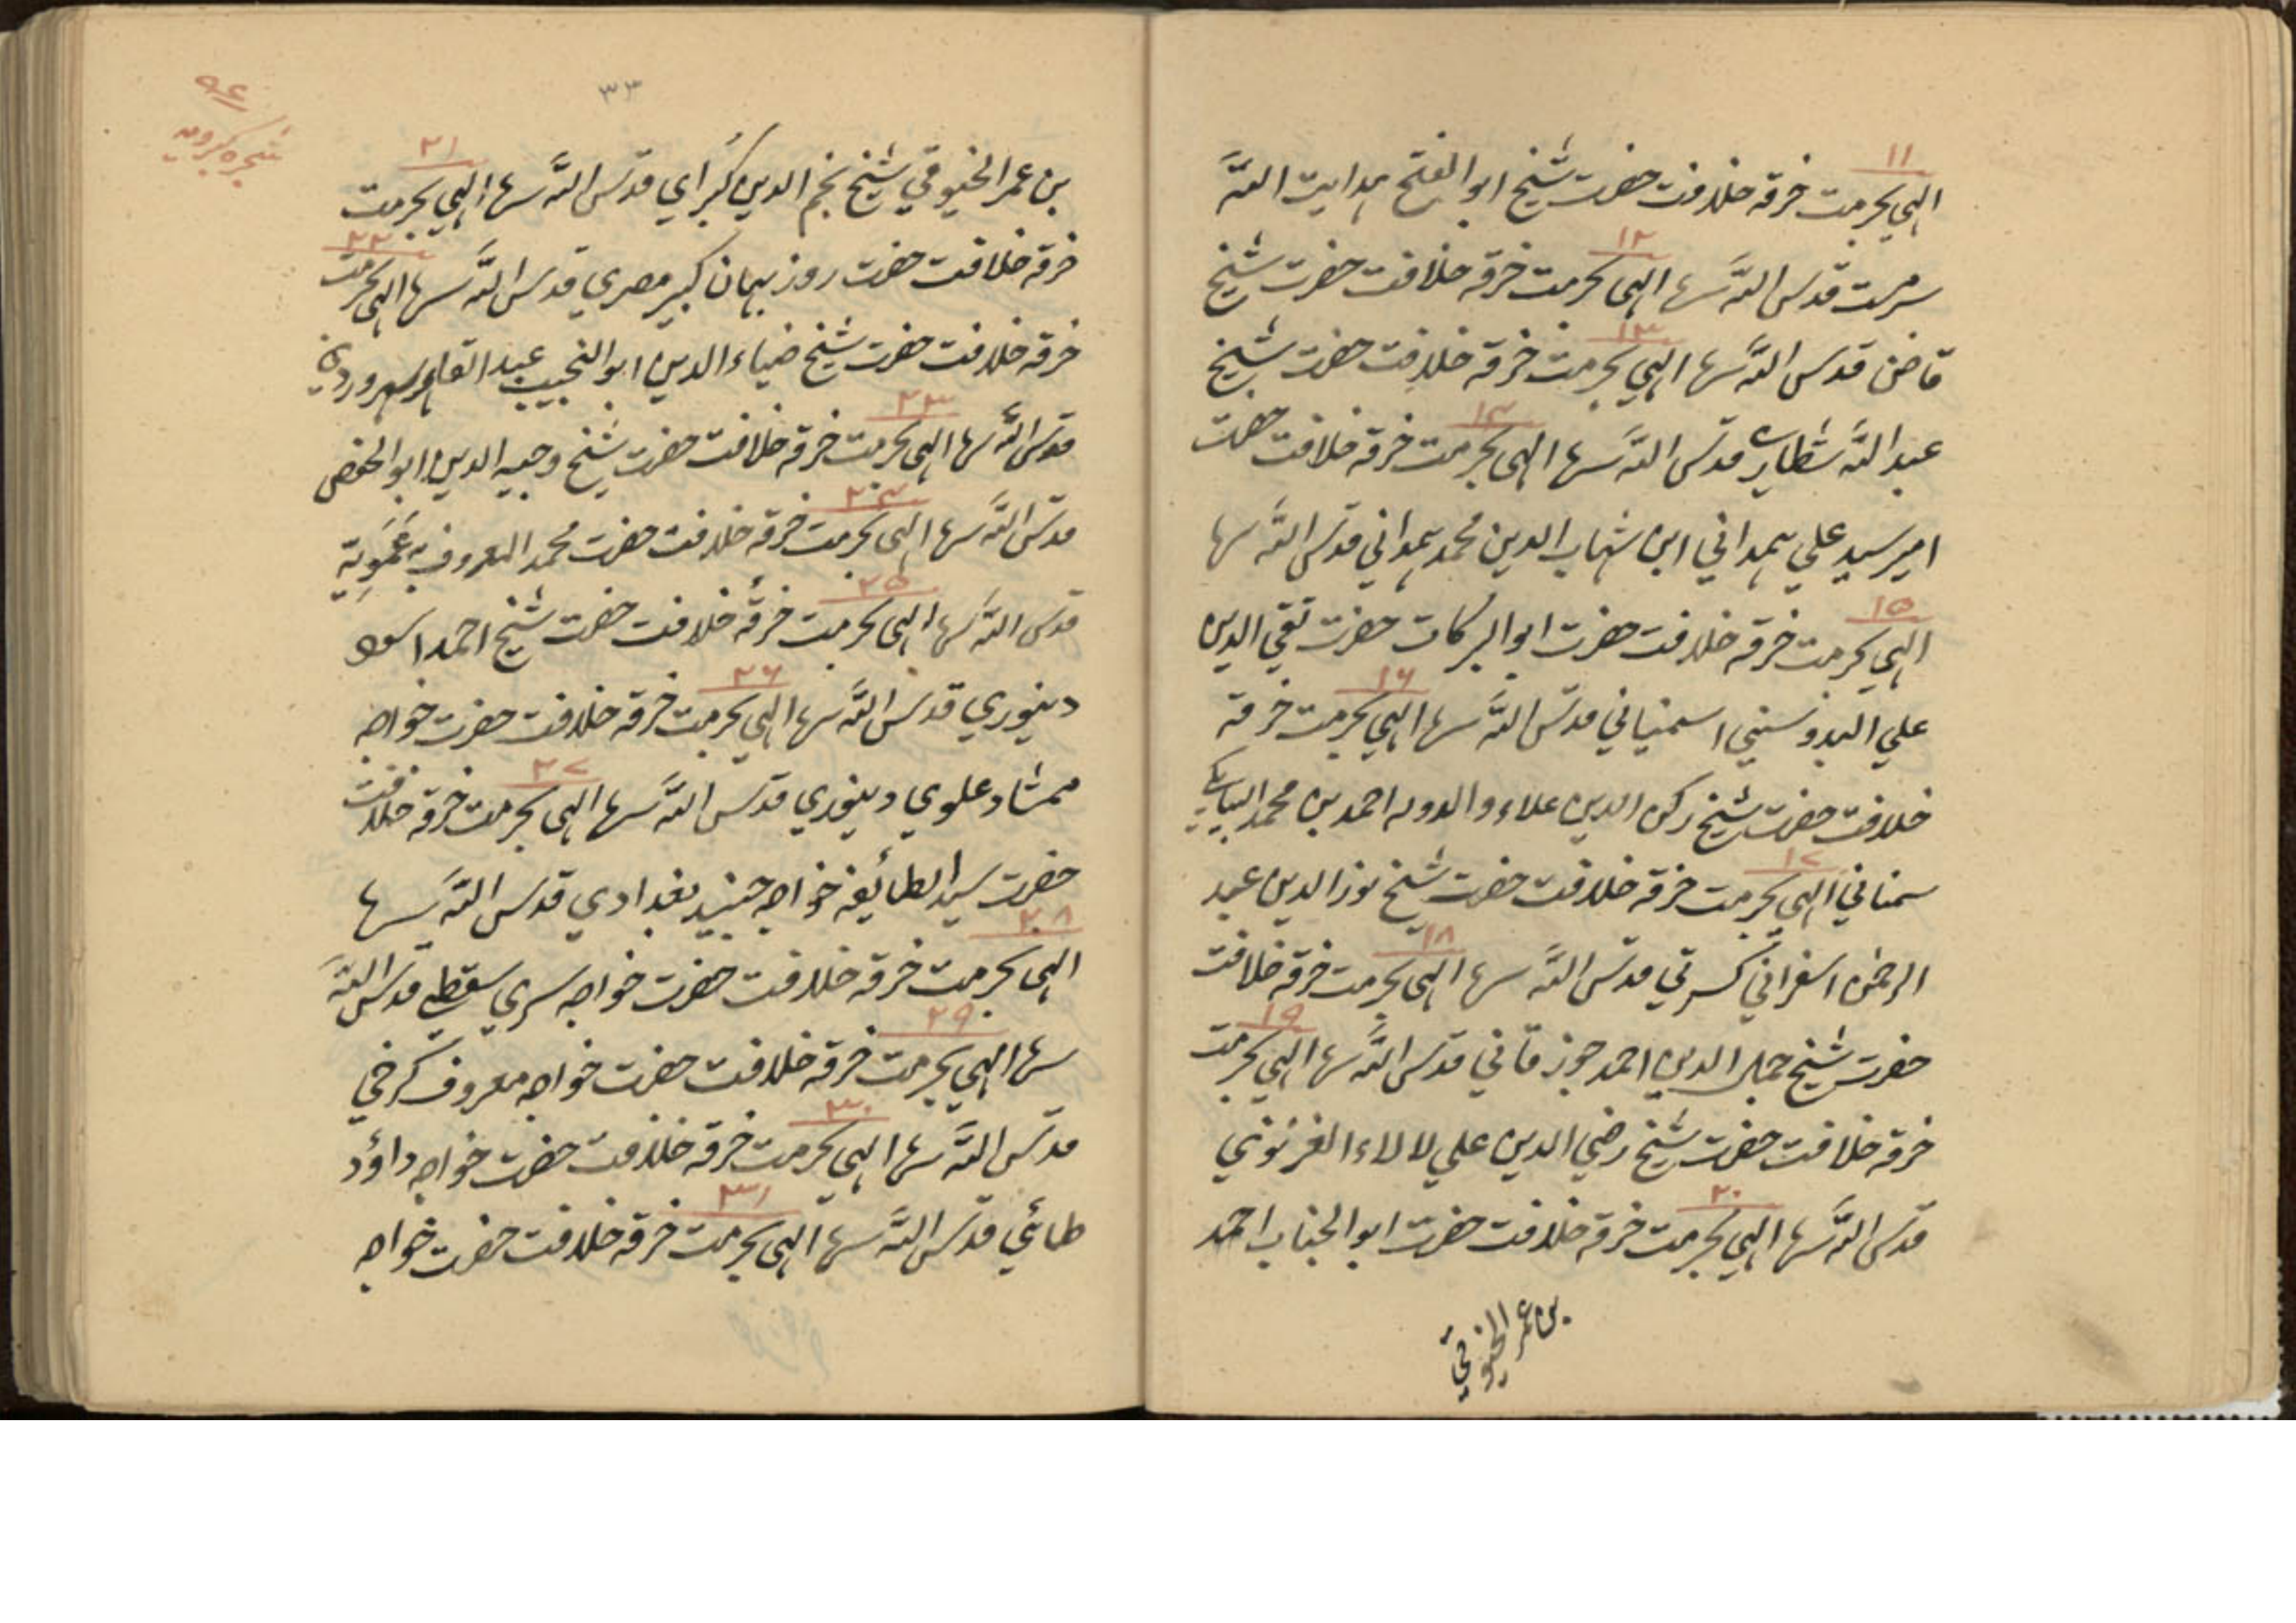 ۱۱
الہي بحرمت خرقه خلافت حضرت شيخ ابوالفتح ہدايت اللّه
۱۲
سرمست قدس اللّه سرہا الہي بحرمت خرقه خلافت حضرت شيخ
۱۳
قاضن قدس اللّه سرہا الہي بحرمت خرقه خلافت حضرت شيخ
۱۴
عبداللّه شطاري قدس اللّه سرہا الہي بحرمت خرقه خلافت حضرت
امير سيد علي ہمداني ابن شہاب الدين محمد ہمداني قدس اللّه سرہا
۱۵
الہي بحرمت خرقه خلافت حضرت ابوالبركات حضرت تقي الدين
۱۶
علي الدوسني اسمنياني قدس اللّه سرہا الہي بحرمت خرقه
خلافت حضرت شيخ ركن الدين علاء والدوله احمد بن محمد البيابانكي
۱۷
سمناني الہي بحرمت خرقه خلافت حضرت شيخ نورالدين عبد
۱۸
الرحمن اسفراني كسرتي قدس اللّه سرہا الہي بحرمت خرقه خلافت
۱۹
حضرت شيخ جمال الدين احمد جوزقاني قدس اللّه سرہا الہي بحرمت
خرقه خلافت حضرت شيخ رضي الدين علي لالاء الغزنوني
۲۰
قدس اللّه سرہا الہي بحرمت خرقه خلافت حضرت ابوالجناب احمد
بن عمر الخيوقي
۳۳
۹۴
شجره كبرويه
۲۱
بن عمر الخيوقي شيخ نجم الدين كبراي قدس اللّه سرہا الہي بحرمت
۲۲
خرقه خلافت حضرت روزبہان كبير مصري قدس اللّه سرہا الہي بحرمت
خرقه خلافت حضرت شيخ ضياءالدين ابوالنجيب عبدالقاہر سہروردي
۲۳
قدس اللّه سرہا الہي بحرمت خرقه خلافت حضرت شيخ وجيه الدين ابوالحفص
۲۴
قدس اللّه سرہا الہي بحرمت خرقه خلافت حضرت محمد المعروف به عمويه
۲۵
قدس اللّه سرہا الہي بحرمت خرقه خلافت حضرت شيخ احمد اسود
۲۶
دينوري قدس اللّه سرہا الہي بحرمت خرقه خلافت حضرت خواجه
۲۷
ممشاد علوي دينوري قدس اللّه سرہا الہي بحرمت خرقه خلافت
حضرت سيد الطائيفه خواجه جنيد بغدادي قدس اللّه سرہا
۲۸
الہي بحرمت خرقه خلافت حضرت خواجه سري سقطي قدس اللّه
۲۹
سرہا الہي بحرمت خرقه خلافت حضرت خواجه معروف كرخي
۳۰
قدس اللّه سرہا الہي بحرمت خرقه خلافت حضرت خواجه داؤد
۳۱
طائي قدس اللّه سرہا الہي بحرمت خرقه خلافت حضرت خواجه